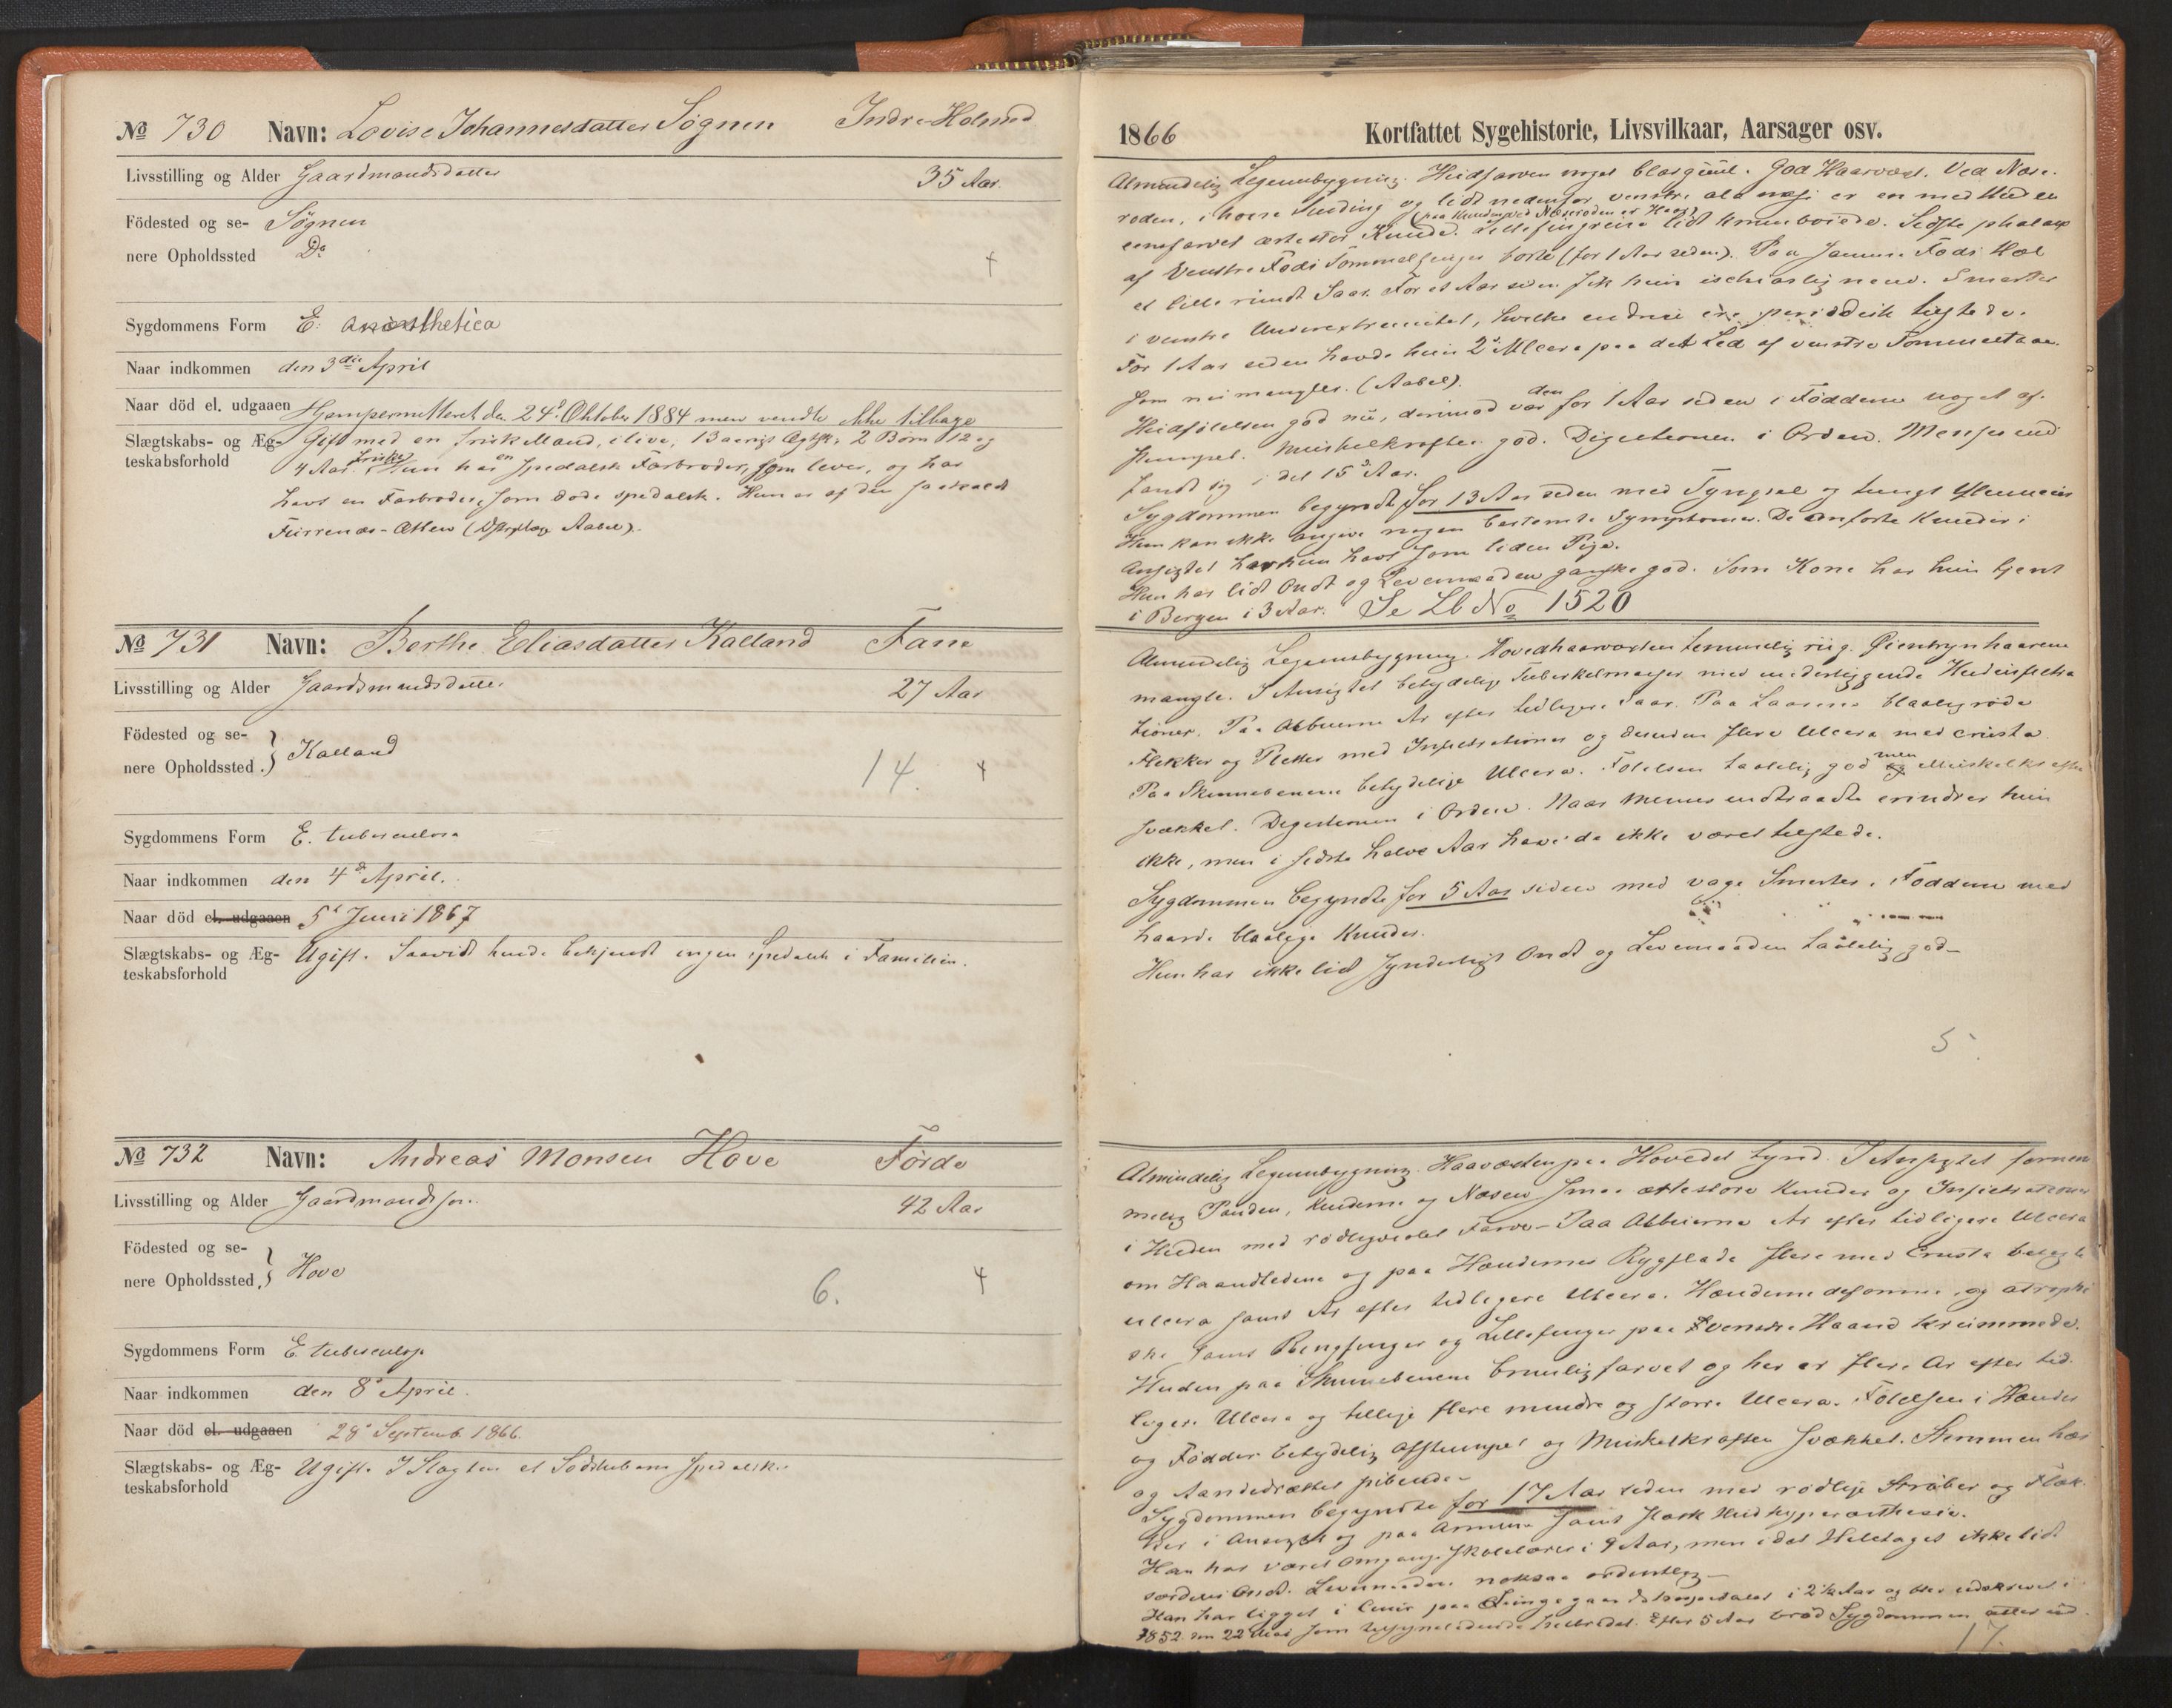 No 730 Navn: Lovise Johannesdatter Søgnen Indre-Holmed
Livsstilling og Alder Gaardmandsdatter 35 Aar.
Födested og se- Søgnen
nere Opholdssted Do +
Sygdommens Form E: anæsthetica
Naar indkommen den 3die April
Naar död el. udgaaen Hjempermitteret den 24de Oktober 1884 men vendte ikke tilbage
Slægtskabs- og Æg- Gift med en frisk Mand, i live, 13 aarigt Ægtsk: 2 Børn 12 og
teskabsforhold 4 Aar friske. Hun har en spedalsk Farbroder, som lever, og har
havt en Farbroder, som døde spedalsk. Hun er af den saakaldte
Furrenæs-Ætten (Aabel).
No 731 Navn: Berthe Eliasdatter Kalland Fane
Livsstilling og Alder Gaardmandsdatter 27 Aar
Födested og se-
nere Opholdssted. } Kalland 14. +
Sygdommens Form E. tuberculosa
Naar indkommen den 4de April.
Naar död el. udgaaen 5t Juni 1867
Slægtskabs- og Æg- Ugift. Saavidt hende bekjendt ingen spedalsk i Familien.
teskabsforhold
No 732 Navn: Andreas Monsen Hove Førde
Livsstilling og Alder Gaardmandssøn. 42 Aar
Födested og se-
nere Opholdssted. } Hove 6. +
Sygdommens Form E. tuberculosa
Naar indkommen den 8de April.
Naar död el. udgaaen 28de Septemb. 1866.
Slægtskabs- og Æg- Ugift. I Slægten et Sødskebarn spedalsk.
teskabsforhold
1866 Kortfattet Sygehistorie, Livsvilkaar, Aarsager osv.
Almindelig Legemsbygning. Hudfarven noget bleggul. God Haarvæxt. Ved Næse-
roden, i høire og lidt nedenfor venstre ala nasi er en med Huden
ensfarvet ærtestor Knude. (paa Knuden ved Næseroden er Haar) Lillefingrene lidt krumbøiede. Sidste phalanx
af venstre Fods Tommelfinger borte (for 1 Aar siden). Paa samme Fods Hæl
et lille rundt Saar. For et Aar siden fik hun ischiaslignende Smerter
i venstre Underextremitet, hvilke endnu ere periodisk tilstede.
For 1 Aar siden havde hun 2de Ulcera paa det Led af venstre Tommeltaa
som nu mangler. (Aabel).
Hudfølelsen god nu, derimod var den for 1 Aar siden i Fødderne noget af-
stumpet. Muskelkraften god. Digestionen i Orden. Menses ind
fandt sig i det 15de Aar.
Sygdommen begyndte for 13 Aar siden med Tyngsel og tungt
Hun kan ikke angive nogen bestemte Symptomer. De anførte Knuder i
Ansigtet har hun havt som liden Pige.
Hun har lidt Ondt og Levemaaden ganske god. Som Kone har hun tjent
i Bergen i 3 Aar. Se Lb No 1520
Almindelig Legemsbygning. Hovedhaarvæxten temmelig riig. Øienbrynhaarene
mangle. I Ansigtet betydelige Tuberkelmasser med underliggende Hudinfiltra
tioner. Paa Albuerne Ar efter tidligere Saar. Paa Laarene blaalig røde
Flekker og Pletter med Infiltrationer og desuden flere Ulcera med crusta.
Paa Skinnebenene betydelige Ulcera. Følelsen taalelig god og men Muskelkraften
svækket. Digestionen i Orden. Naar Menses indtraadte erindrer hun
ikke, men i sidste halve Aar have de ikke været tilstede.
Sygdommen begyndte for 5 Aar siden med vage Smerter i Fødderne med
haarde blaalige Knuder.
Hun har ikke lidt synderligt Ondt og Levemaaden taalelig god
5.
Almindelig Legemsbygning. Haarvæxten paa Hovedet tynd. I Ansigtet fornem
melig Panden, Kinderne og Næsen smaa ærtestore Knuder og Infiltrationer
i Huden med rødligviolet Farve. Paa Albuerne Ar efter tidligere Ulcera
om Haandledene og paa Hændernes Rygflade flere med Crusta belagte
ulcera samt Ar efter tidligere Ulcera. Hænderne deforme og atrophi
ske samt Ringfinger og Lillefinger paa venstre Haand krummede.
Huden paa Skinnebenene brunlig farvet og her er flere Ar efter tid
ligere Ulcera og tillige flere mindre og større Ulcera. Følelsen i Hænder
og Fødder betydelig afstumpet og Muskelkraften svækket. Stemmen hæs
og Aandedrættet pibende
Sygdommen begyndte for 17 Aar siden med rødlige Striber og Flæk-
ker i Ansigtet og paa Armene samt stærk Hudhyperæsthesie.
Han har været Omgangsskolelærer i 9 Aar, men i det Heletaget ikke lidt
særdeles Ondt. Levemaaden noksaa ordentlig
Han har ligget i Cuur paa Lungegaardshospitalet i 2½ Aar og blev udskrevet i
1852 den 22 Mai som tilsyneladende helbredet. Efter 5 Aar brød Sygdommen atter ud.
17.